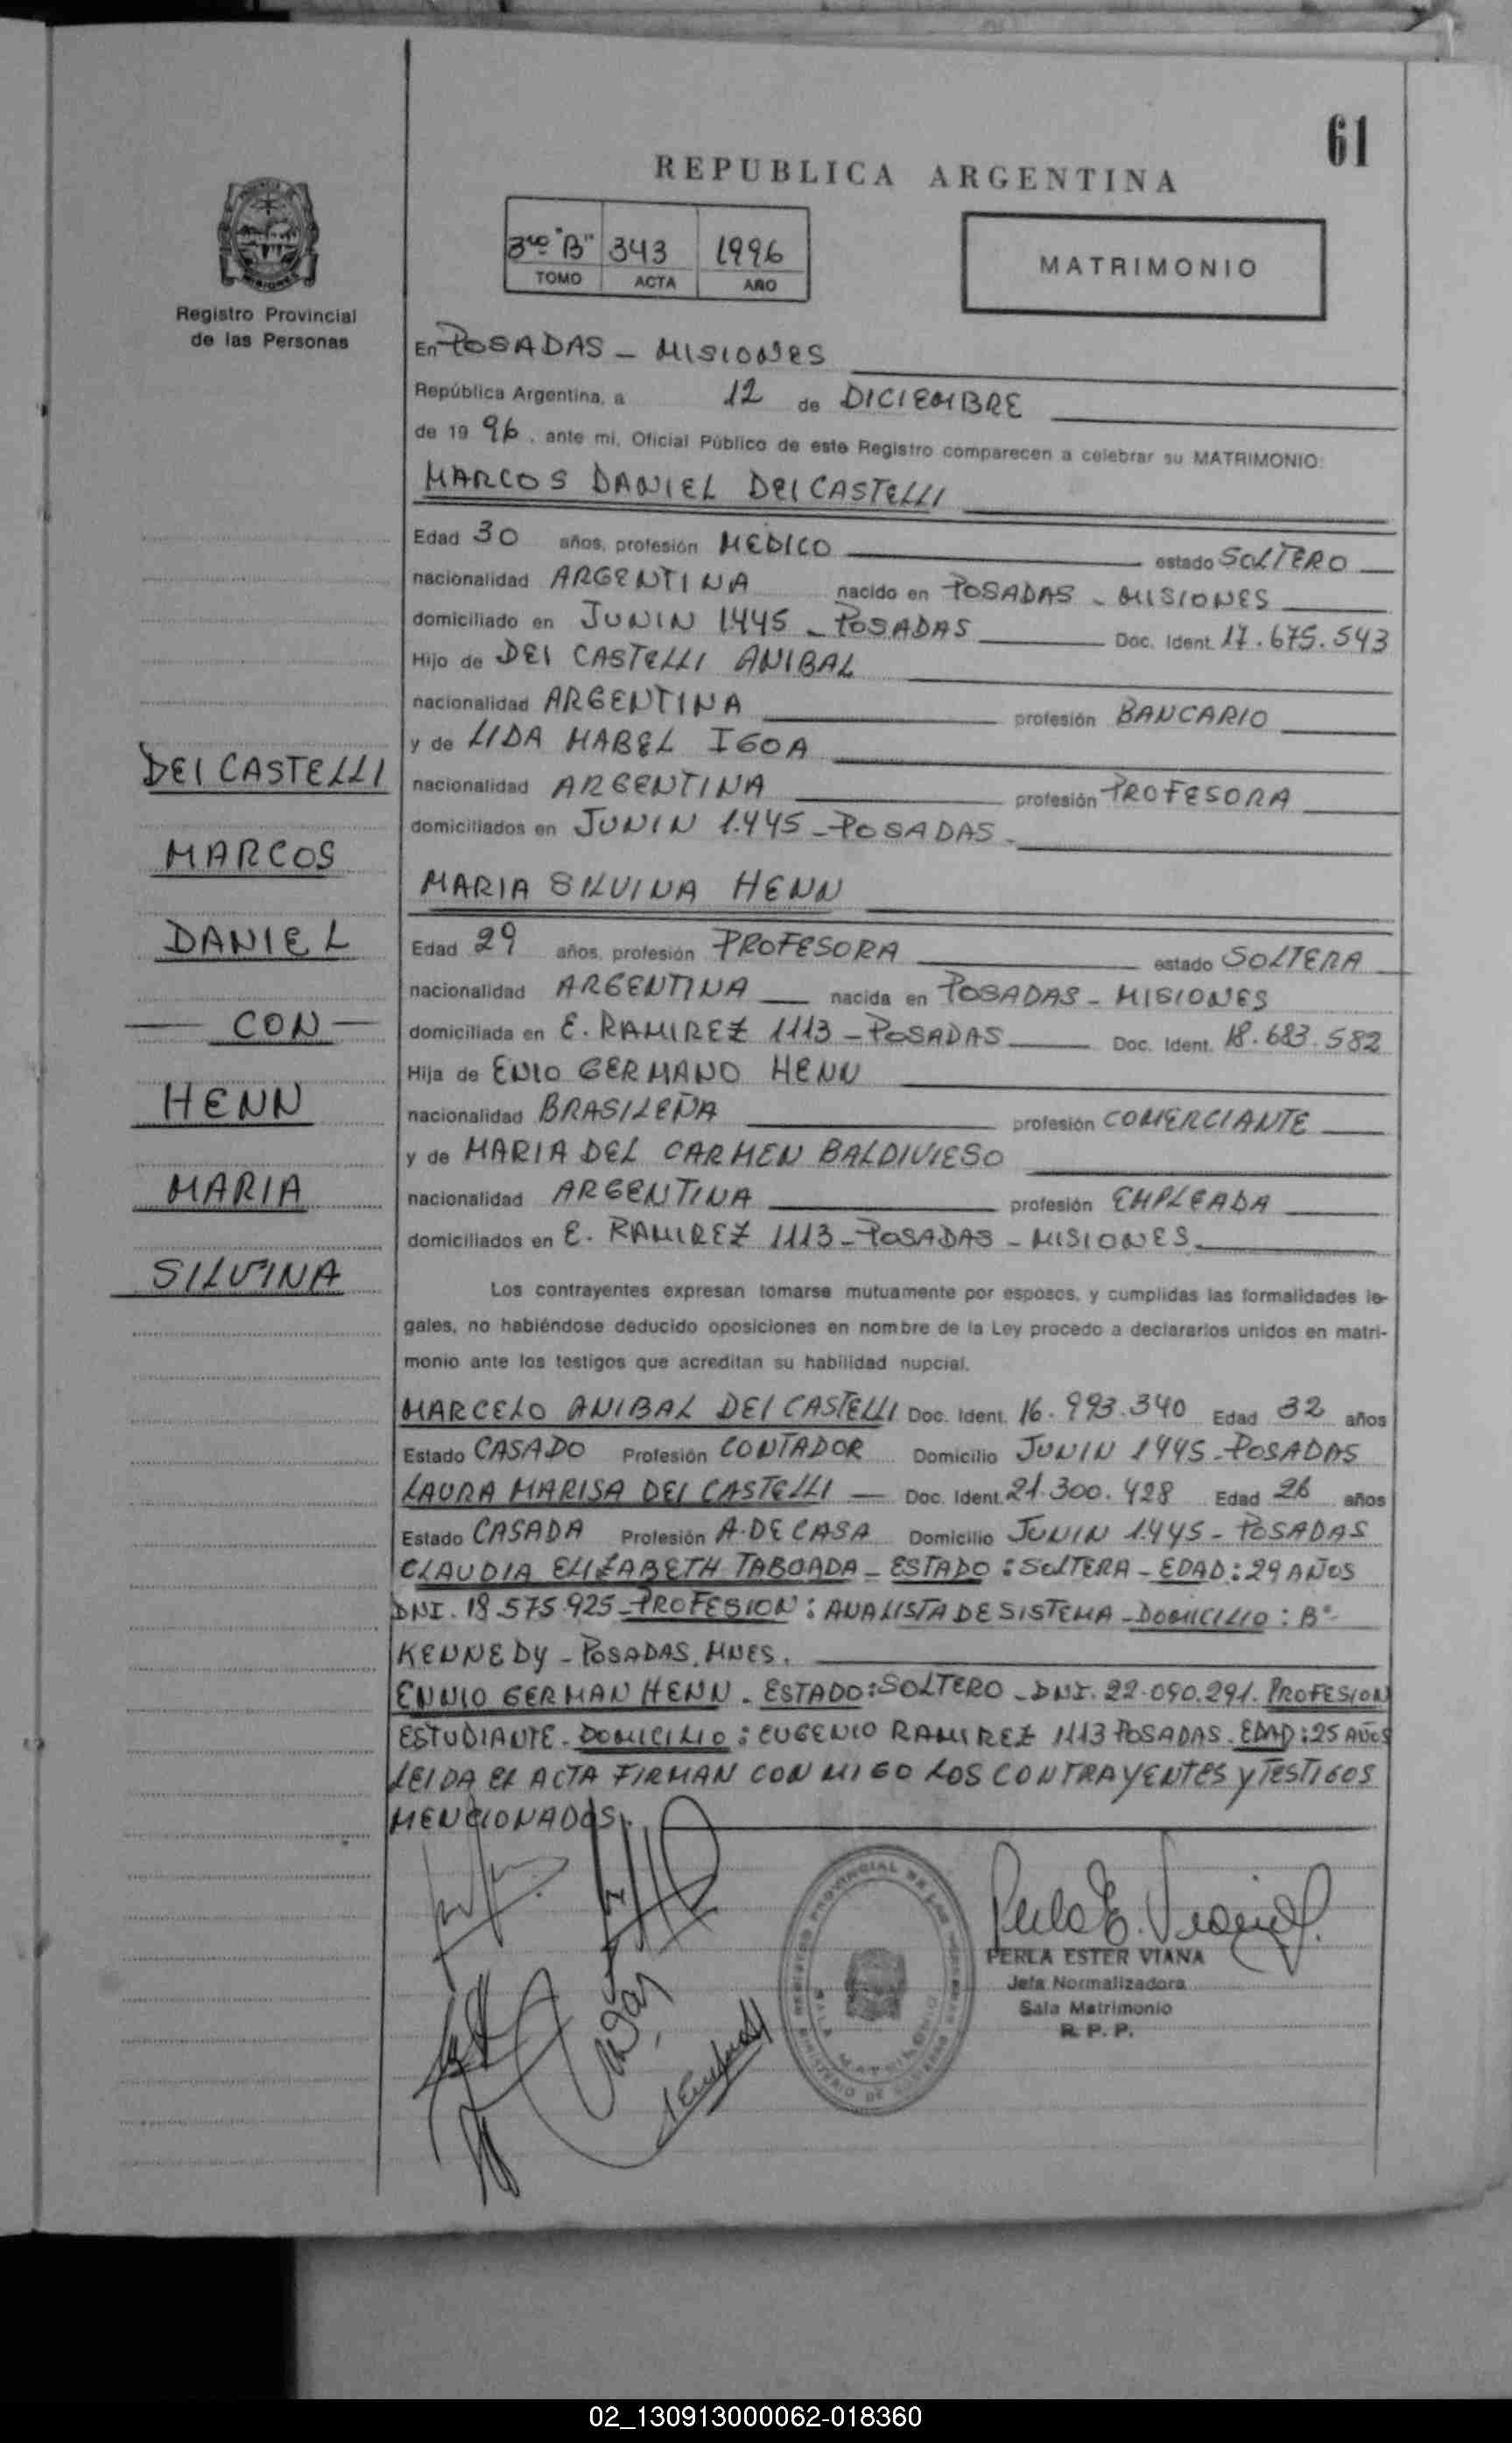 61
REPUBLICA ARGENTINA
3ro "B" 343 1996
TOMO ACTA AÑO
MATRIMONIO
Registro Provincial
de las Personas
En POSADAS - MISIONES
República Argentina, a 12 de DICIEMBRE
de 1996, ante mi, Oficial Público de este Registro comparecen a celebrar su MATRIMONIO:
MARCOS DANIEL DEI CASTELLI
Edad 30 años, profesión MEDICO estado SOLTERO
nacionalidad ARGENTINA nacido en POSADAS - MISIONES
domiciliado en JUNIN 1445 - POSADAS Doc. Ident. 17.675.543
Hijo de DEI CASTELLI ANIBAL
nacionalidad ARGENTINA profesión BANCARIO
y de LIDA MABEL IGOA
nacionalidad ARGENTINA profesión PROFESORA
domiciliados en JUNIN 1.445 - POSADAS -
MARIA SILVINA HENN
Edad 29 años, profesión PROFESORA estado SOLTERA
nacionalidad ARGENTINA nacida en POSADAS - MISIONES
domiciliada en E. RAMIREZ 1113 - POSADAS Doc. Ident. 18.683.582
Hija de ENIO GERMANO HENN
nacionalidad BRASILEÑA profesión COMERCIANTE
y de MARIA DEL CARMEN BALDIVIESO
nacionalidad ARGENTINA profesión EMPLEADA
domiciliados en E. RAMIREZ 1113 - POSADAS - MISIONES
DEI CASTELLI
MARCOS
DANIEL
— CON —
HENN
MARIA
SILVINA
Los contrayentes expresan tomarse mutuamente por esposos, y cumplidas las formalidades le-
gales, no habiéndose deducido oposiciones en nombre de la Ley procedo a declararlos unidos en matri-
monio ante los testigos que acreditan su habilidad nupcial.
MARCELO ANIBAL DEI CASTELLI Doc. Ident. 16.993.340 Edad 32 años
Estado CASADO Profesión CONTADOR Domicilio JUNIN 1445 - POSADAS
LAURA MARISA DEI CASTELLI — Doc. Ident. 21.300.428 Edad 26 años
Estado CASADA Profesión A. DE CASA Domicilio JUNIN 1.445 - POSADAS
CLAUDIA ELIZABETH TABOADA - ESTADO: SOLTERA - EDAD: 29 AÑOS
DNI. 18.575.925 - PROFESION: ANALISTA DE SISTEMA - DOMICILIO: Bº-
KENNEDY - POSADAS, MNES.
ENNIO GERMAN HENN. ESTADO: SOLTERO - DNI. 22.090.291. PROFESION
ESTUDIANTE. DOMICILIO: EUGENIO RAMIREZ 1113 POSADAS. EDAD: 25 AÑOS
LEIDA EL ACTA FIRMAN CON MIGO LOS CONTRAYENTES Y TESTIGOS
MENCIONADOS.
REGISTRO PROVINCIAL DE LAS PERSONAS
Perla E. Viana
PERLA ESTER VIANA
Jefa Normalizadora
Sala Matrimonio
R. P. P.
02_130913000062-018360